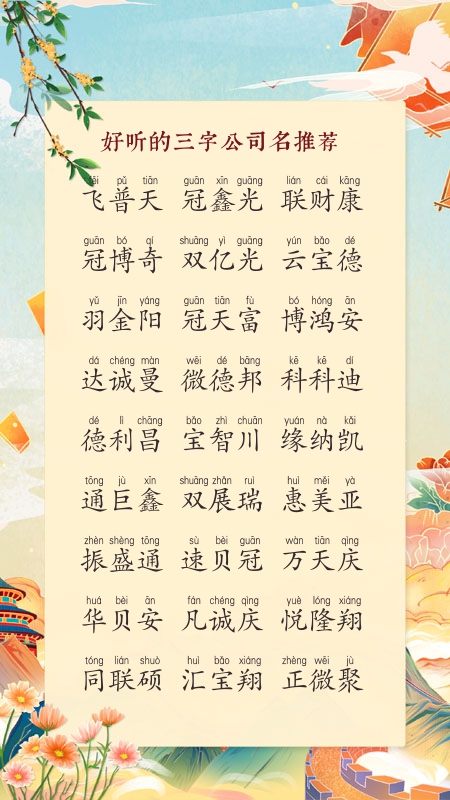 好听的三字公司名推荐
fēi pǔ tiān guān xīn guāng lián cái kāng
飞普天 冠鑫光 联财康
guān bó qí shuāng yì guāng yún bǎo dé
冠博奇 双亿光 云宝德
yǔ jīn yáng guān tiān fù bó hóng ān
羽金阳 冠天富 博鸿安
dá chéng màn wēi dé bāng kē kē dí
达诚曼 微德邦 科科迪
dé lì chāng bǎo zhì chuān yuán nà kǎi
德利昌 宝智川 缘纳凯
tōng jù xīn shuāng zhǎn ruì huì měi yà
通巨鑫 双展瑞 惠美亚
zhèn shèng tōng sù bèi guān wàn tiān qìng
振盛通 速贝冠 万天庆
huá bèi ān fán chéng qìng yuè lóng xiáng
华贝安 凡诚庆 悦隆翔
tóng lián shuò huì bǎo xiáng zhèng wēi jù
同联硕 汇宝翔 正微聚